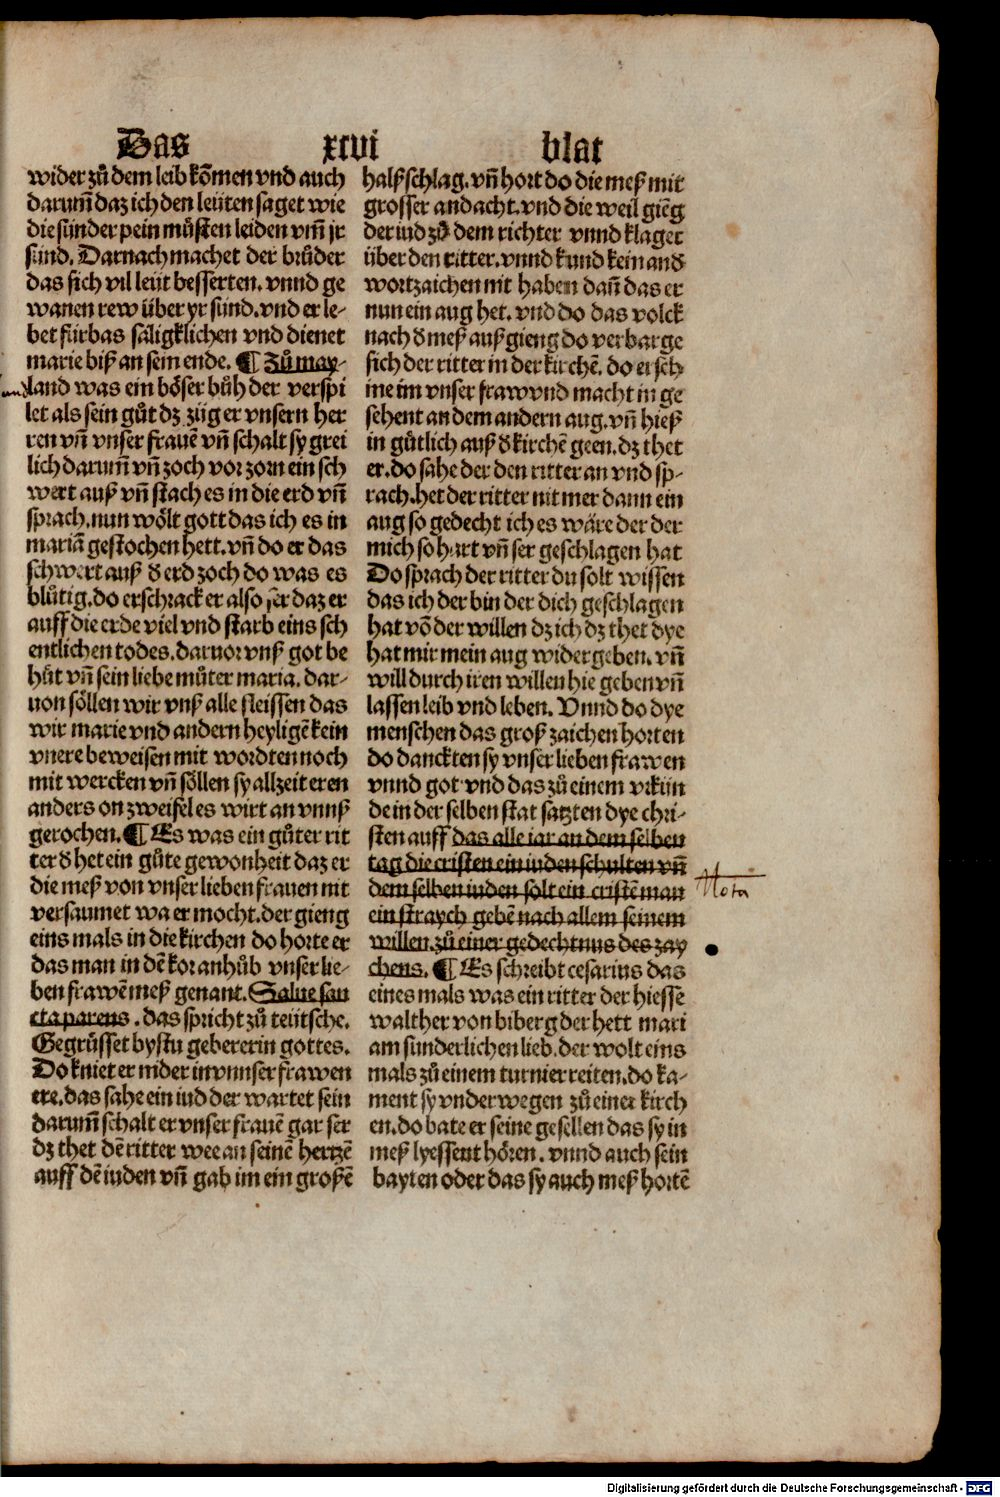 Das xcvi blat
wider zů dem leib kom̃en vnd auch
darum̃ daz ich den leüten saget wie
die sünder pein müsten leiden vm̃ jr
sünd. Darnach machet der brůder
das sich vil leüt besserten. vnnd ge
wanen rew über yr sünd. vnd er le-
bet fürbas säligklichen vnd dienet
marie biß an sein ende. ¶ Zů may-
land was ein böser bůb der verspi
let als sein gůt dz züg er vnsern her
ren vñ vnser frauẽ vñ schalt sy grei
lich darum̃ vñ zoch vor zorn ein sch
wert auß vñ stach es in die erd vñ
sprach. nun wölt gott das ich es in
mariã gestochen hett. vñ do er das
schwert auß d erd zoch do was es
blůtig. do erschrack er also ser daz er
auff die erde viel vnd starb eins sch
entlichen todes. daruor vnß got be
hüt vñ sein liebe můter maria. dar-
uon söllen wir vnß alle fleissen das
wir marie vnd andern heyligẽ kein
vnere beweisen mit wordten noch
mit wercken vñ söllen sy allzeit eren
anders on zweifel es wirt an vnnß
gerochen. ¶ Es was ein gůter rit
ter d het ein gůte gewonheit daz er
die meß von vnser lieben frauen nit
versaumet wa er mocht. der gieng
eins mals in die kirchen do horte er
das man in dẽ kor anhůb vnser lie-
ben frawẽ meß genant. Salue san
cta parens. das spricht zů teütsche.
Gegrüsset bystu gebererin gottes.
Do kniet er nider in vnnser frawen
ere. das sahe ein iud der wartet sein
darum̃ schalt er vnser frauẽ gar ser
dz thet dẽ ritter wee an seinẽ hertzẽ
auff dẽ iuden vñ gab im ein großẽ
halßschlag. vñ hort do die meß mit
grosser andacht. vnd die weil giẽg
der iud zů dem richter vnnd klaget
über den ritter. vnnd kund kein and
wortzaichen nit haben dañ das er
nun ein aug het. vnd do das volck
nach d meß außgieng do verbarge
sich der ritter in der kirchẽ. do ersch
ine im vnser fraw vnd macht in ge
sehent an dem andern aug. vñ hieß
in gůtlich auß d kirchẽ geen. dz thet
er. do sahe der den ritter an vnd sp-
rach. het der ritter nit mer dann ein
aug so gedecht ich es wäre der der
mich so hart vñ ser geschlagen hat
Do sprach der ritter du solt wissen
das ich der bin der dich geschlagen
hat võ der willen dz ich dz thet dye
hat mir mein aug wider geben. vñ
will durch iren willen hie geben vñ
lassen leib vnd leben. Vnnd do dye
menschen das groß zaichen horten
do danckten sy vnser lieben frawen
vnnd got vnd das zů einem vrkün
de in der selben stat satzten dye chri-
sten auff das alle iar an dem selben
tag die cristen ein iuden schulten vñ
dem selben iuden solt ein cristẽ man
ein straych gebẽ nach allem seinem
willen. zů einer gedechtnus des zay
chens. ¶ Es schreibt cesarius das
eines mals was ein ritter der hiesse
walther von biberg der hett mari
am sunderlichen lieb. der wolt eins
mals zů einem turnier reiten. do ka-
ment sy vnderwegen zů einer kirch
en. do bate er seine gesellen das sy in
meß lyessent hören. vnnd auch sein
bayten oder das sy auch meß hortẽ
Nota
Digitalisierung gefördert durch die Deutsche Forschungsgemeinschaft - DFG